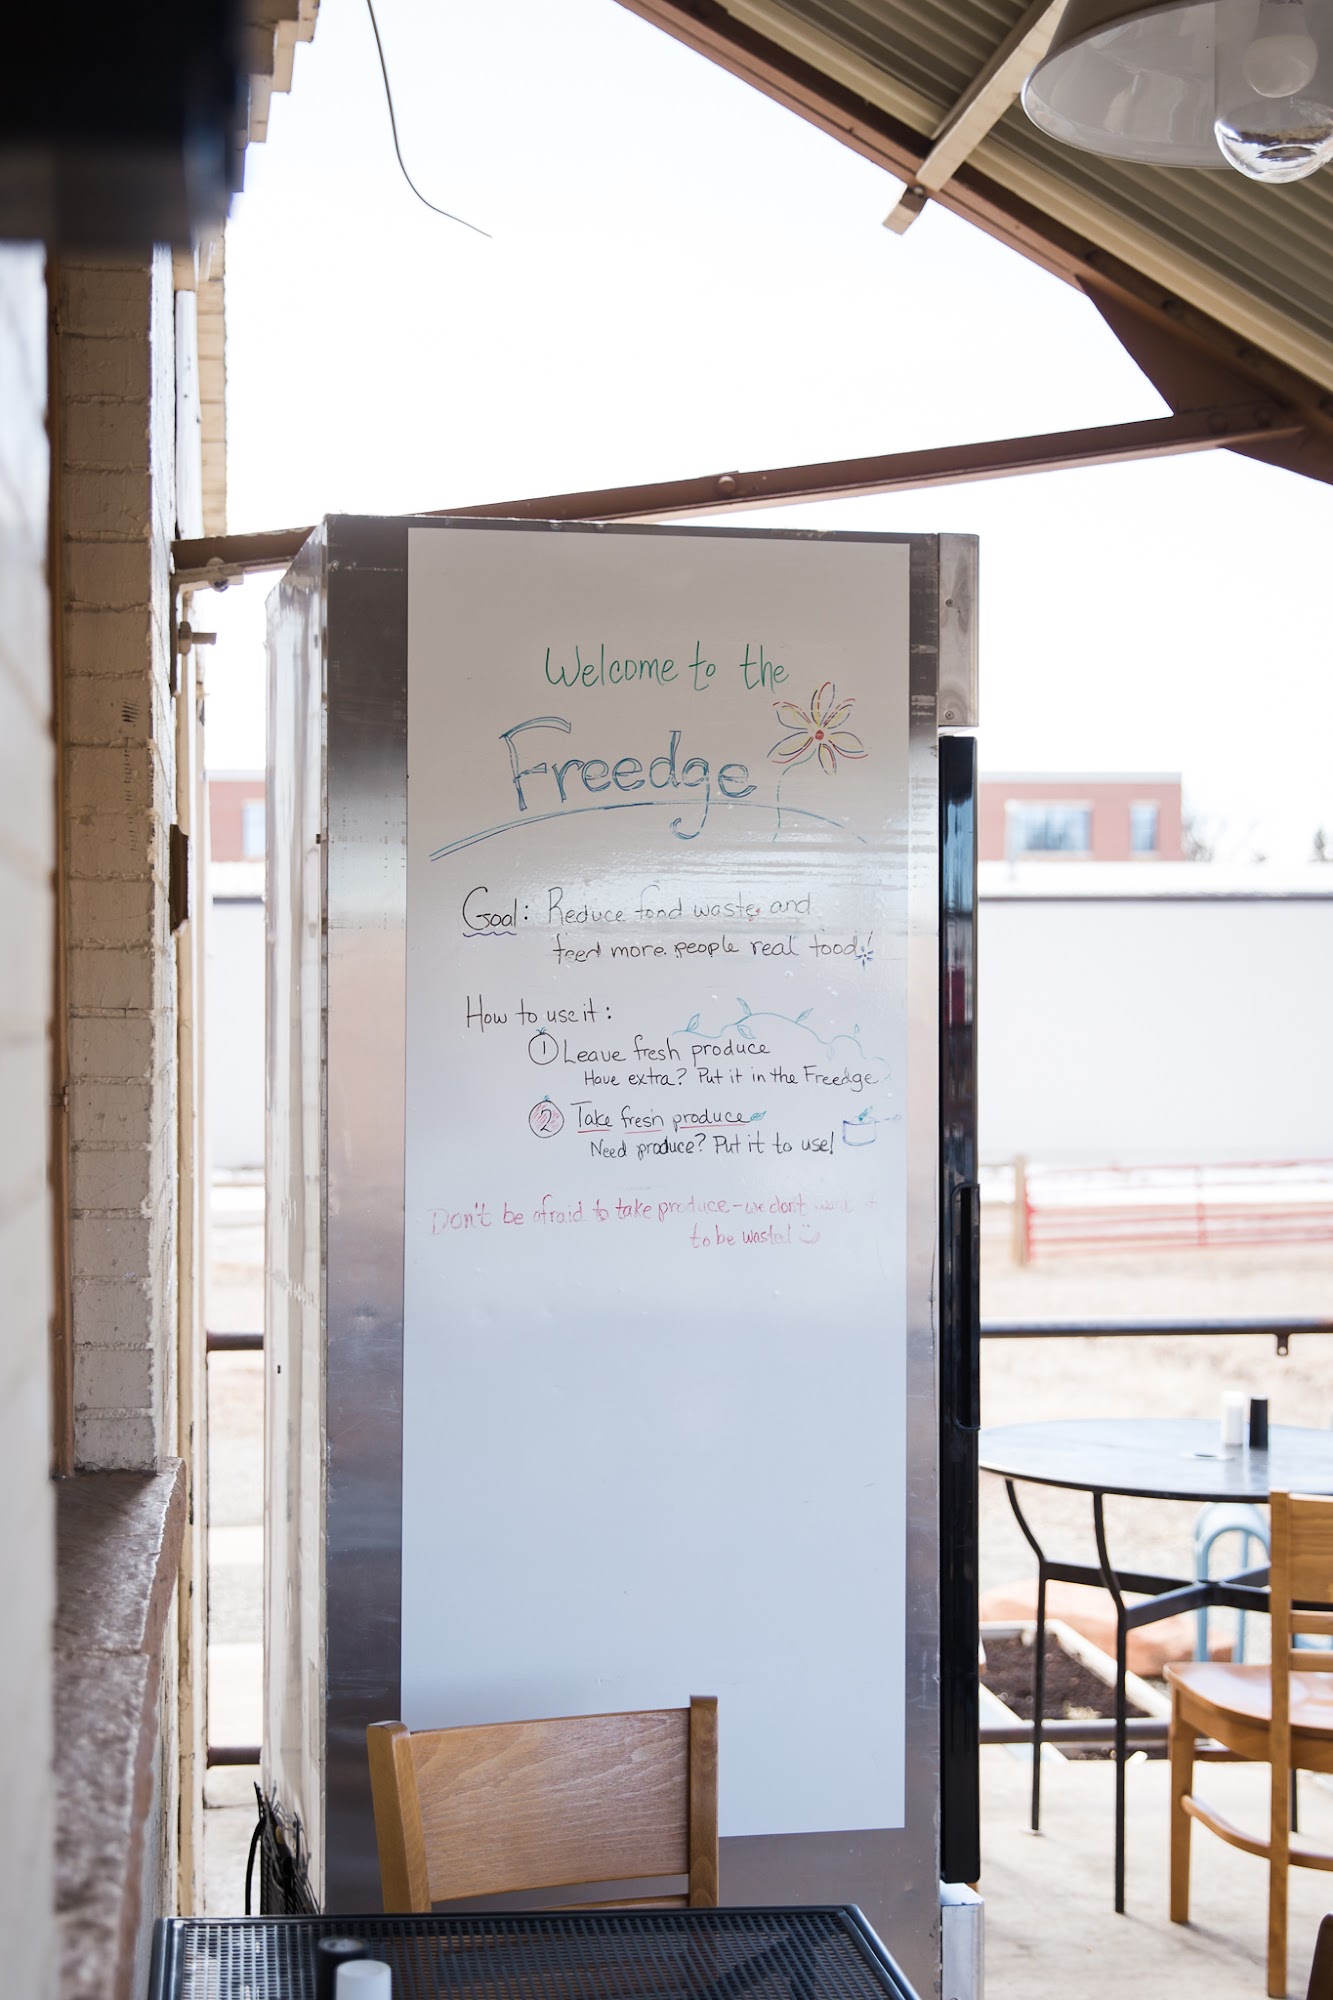 Welcome to the
Freedge
Goal: Reduce food waste and
feed more people real food!
How to use it:
1 Leave fresh produce
Have extra? Put it in the Freedge
2 Take fresh produce
Need produce? Put it to use!
Don't be afraid to take produce - we don't want it
to be wasted